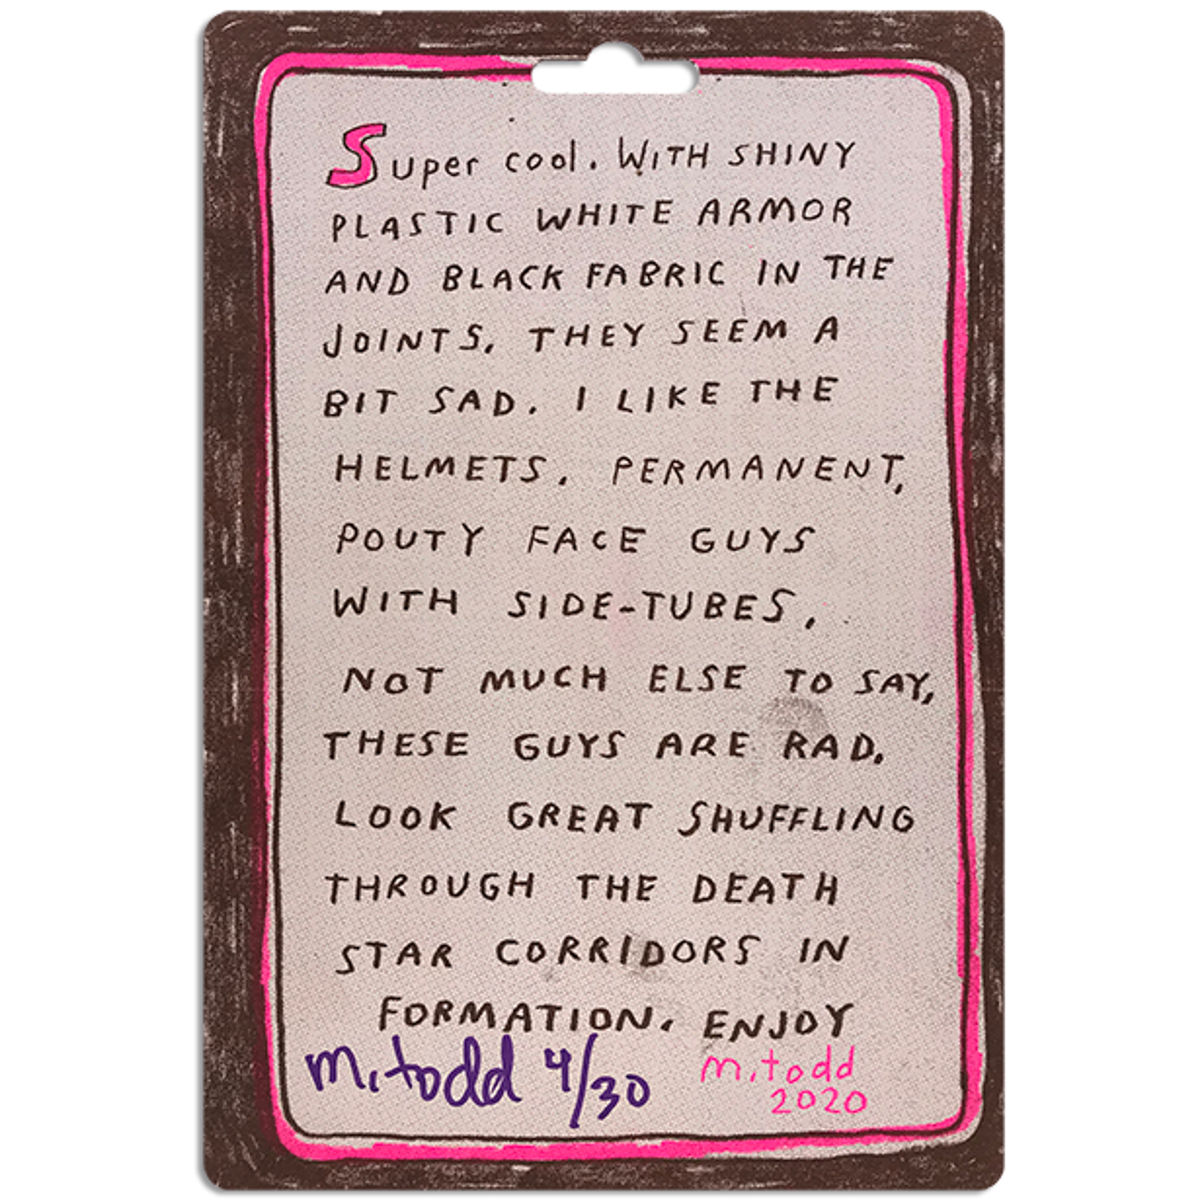 Super cool. WITH SHINY
PLASTIC WHITE ARMOR
AND BLACK FABRIC IN THE
JOINTS, THEY SEEM A
BIT SAD. I LIKE THE
HELMETS. PERMANENT,
POUTY FACE GUYS
WITH SIDE-TUBES.
NOT MUCH ELSE TO SAY,
THESE GUYS ARE RAD.
LOOK GREAT SHUFFLING
THROUGH THE DEATH
STAR CORRIDORS IN
FORMATION. ENJOY
m.todd 4/30
m.todd
2020